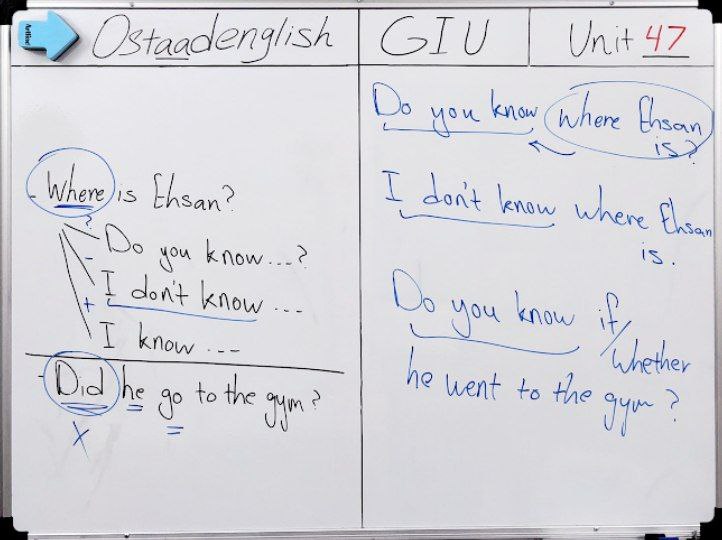 Ostaadenglish
GIU
Unit 47
- Where is Ehsan?
?
Do you know...?
-
I don't know ...
+
I know ---
- Did he go to the gym?
X
Do you know where Ehsan
is?
I don't know where Ehsan
is.
Do you know if/
whether
he went to the gym?